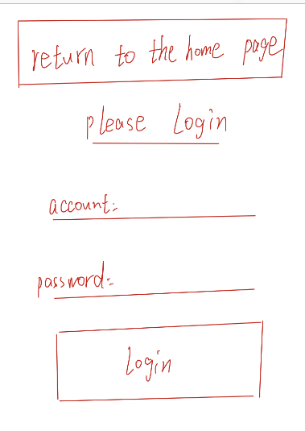 return to the home page
please Login
account:
password:
Login